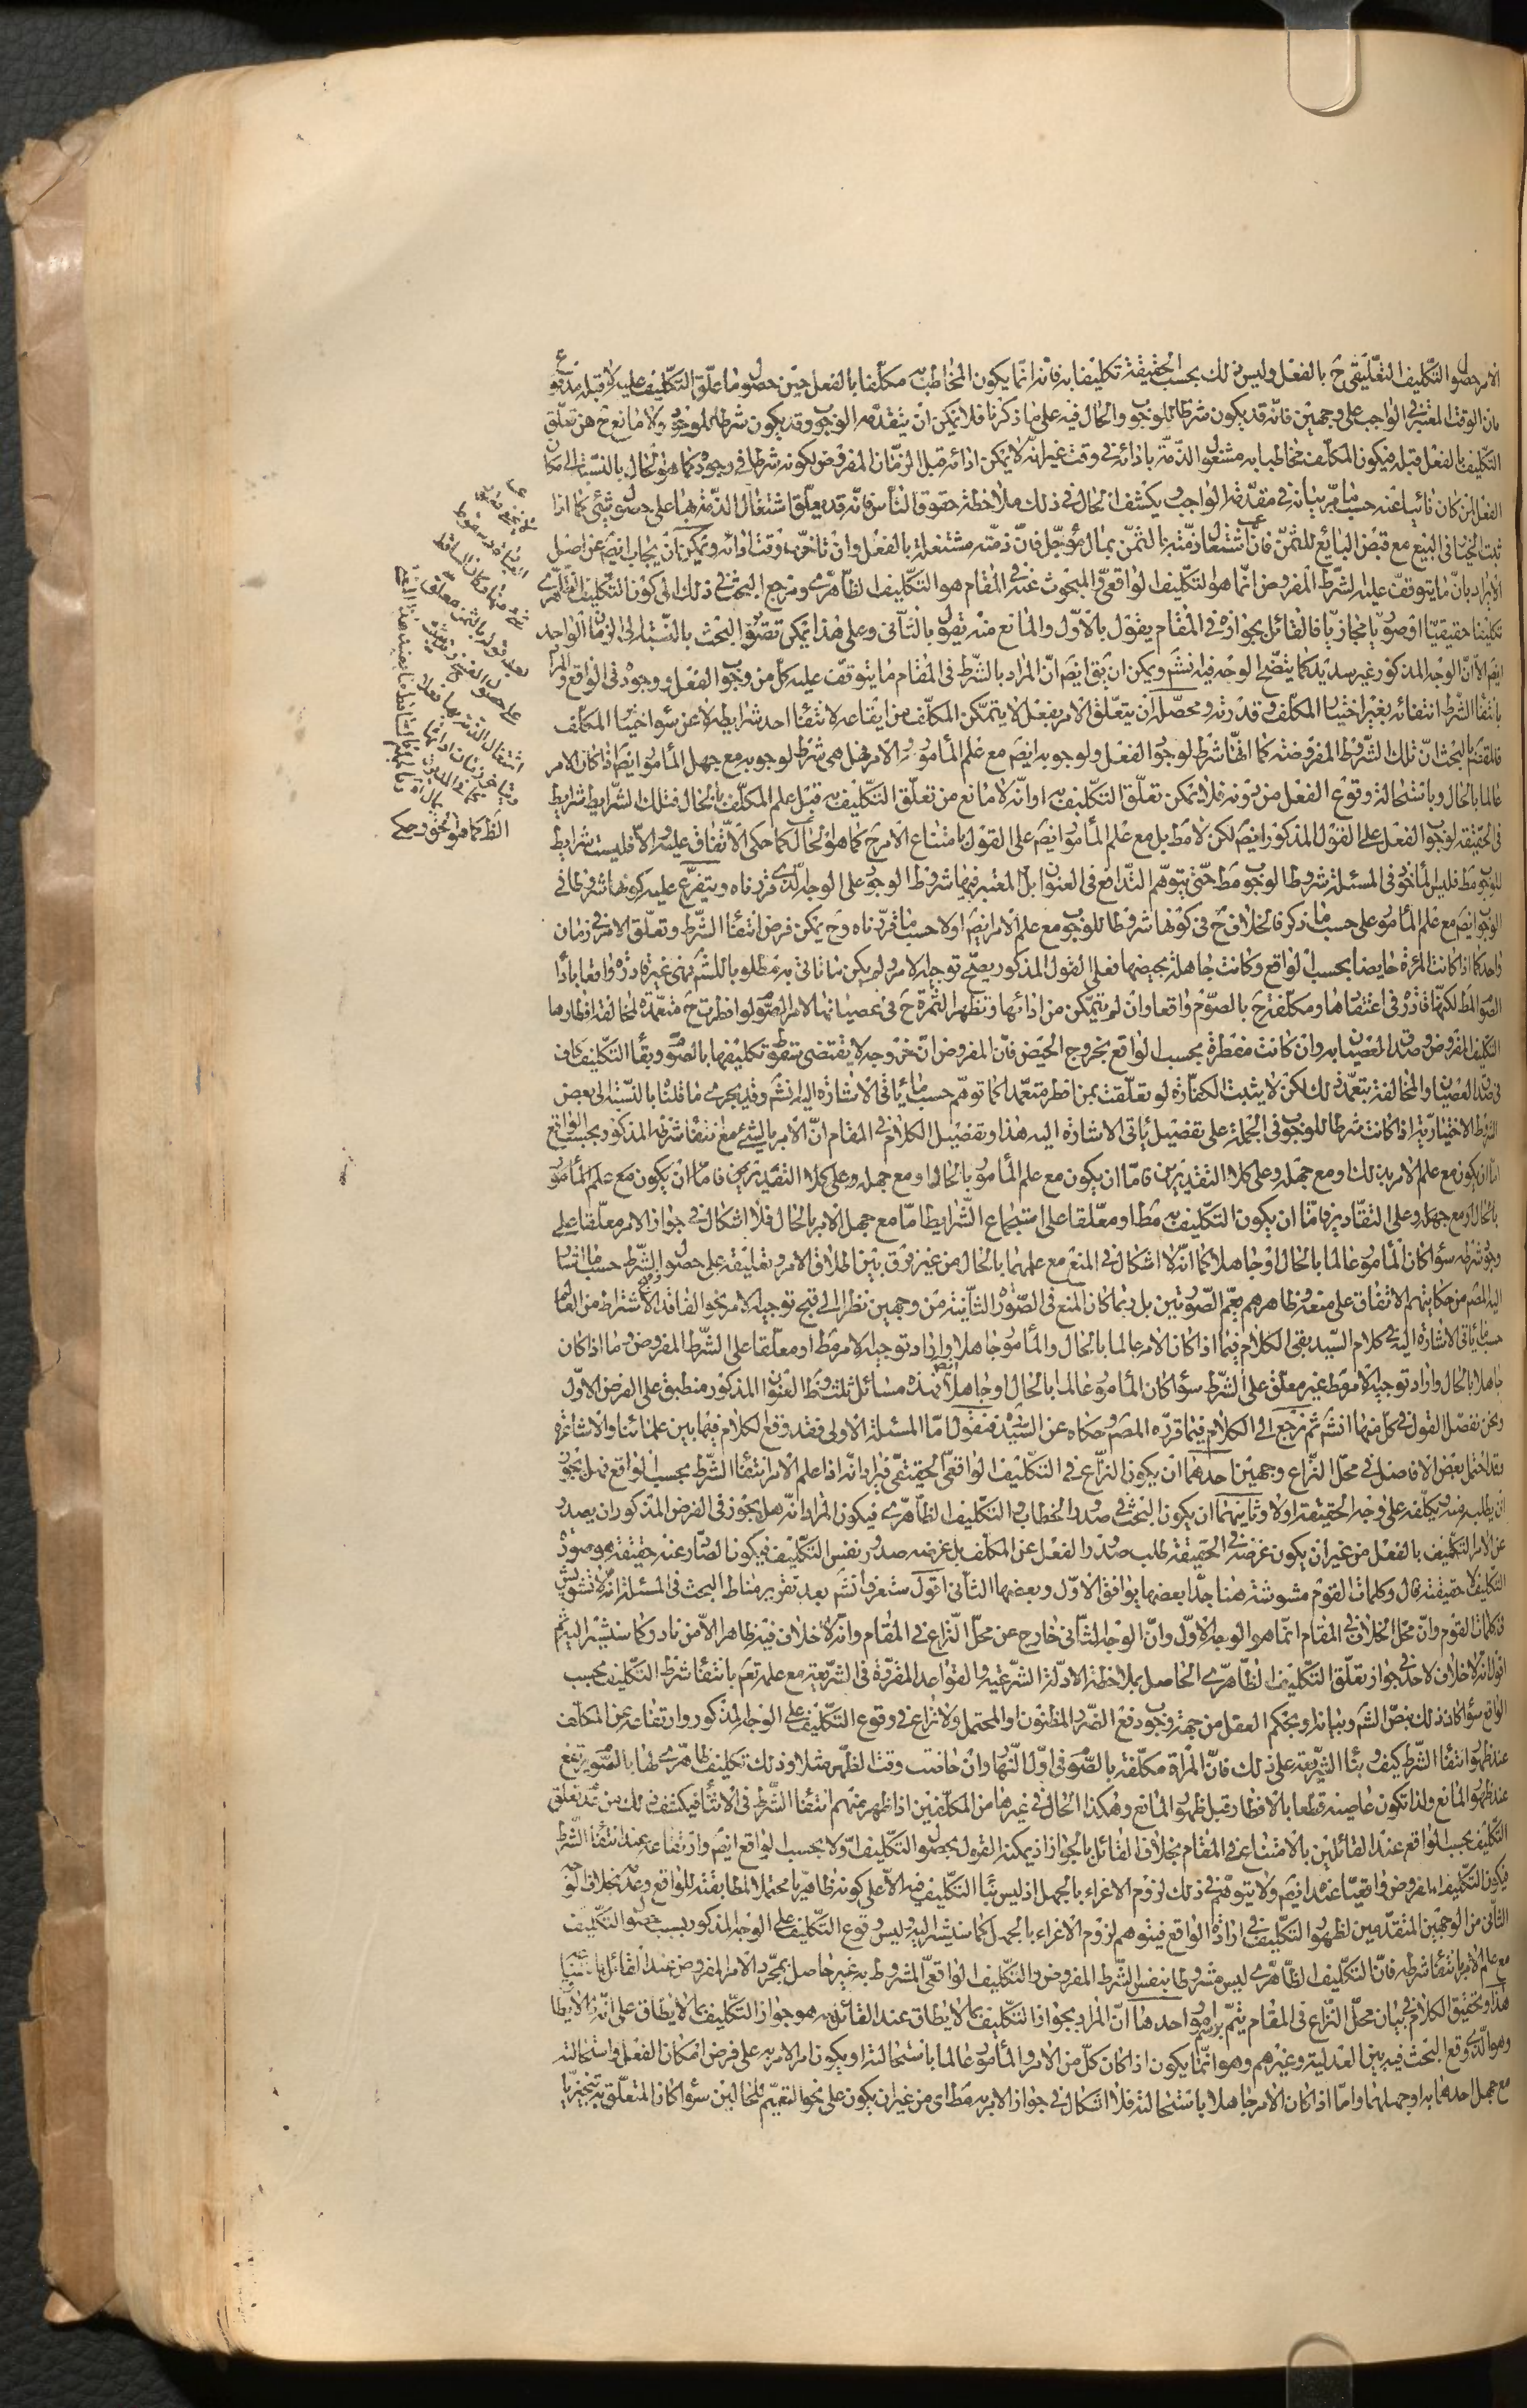 الامر حصول التكليف التعليقي ح بالفعل وليس ذلك بحسب الحقيقة تكليفا به فانه انما يكون المخاطب مكلفا بالفعل حين حصول ما علق التكليف عليه لا قبله
بان الوقت المعتبر في الواجب على وجهين فانه قد يكون شرطا للوجوب والحال فيه على ما ذكرنا فلا يمكن ان يتقدمه الوجوب وقد يكون شرطا للوجود ولا مانع ح من تعلق
التكليف بالفعل قبله فيكون المكلف مخاطبا به مشغول الذمة بادائه في وقت غير انه لا يمكن ادائه قبل الزمان المفروض لكونه شرطا في وجوده كما هو الحال بالنسبة الى مكان
الفعل لمن كان نائيا عنه حسبما مر بيانه في مقدمة الواجب ويكشف الحال في ذلك ملاحظة حقوق الناس فانه قد يعلق اشتغال الذمة بها على حصول شئ كما اذا
ثبت الخيار في البيع مع قبض البايع للثمن فان اشتغال ذمته بالثمن بمال مؤجل فان ذمته مشتغلة بالفعل وان تاخر وقت ادائه ويمكن ان يجاب ايضا عن اصل
الايراد بان ما يتوقف عليه الشرط المفروض انما هو التكليف الواقعي والمبحوث عنه في المقام هو التكليف الظاهري ومرجع البحث في ذلك الى كون التكليف الظاهري
تكليفا حقيقيا او صوريا مجازيا فالقائل بجوازه في المقام يقول بالاول والمانع منه يقول بالثاني وعلى هذا يمكن تصوير البحث بالنسبة الى الزمان الواحد
ايضم الا ان الوجه المذكور غير سديد كما يتضح الوجه فيه انشم ويمكن ان يق ايضم ان المراد بالشرط في المقام ما يتوقف عليه كل من وجوب الفعل ووجوده في الواقع والمراد
بانتفاء الشرط انتفائه بغير اختيار المكلف وقدرته ومحصله ان يتعلق الامر بفعل لا يتمكن المكلف من ايقاعه لانتفاء احد شرايطه لا عن سوء اختيار المكلف
فالمقصم بالبحث ان تلك الشروط المفروضة كما انها شرط لوجود الفعل ولوجوبه ايضم مع علم المأمور والآمر فهل هي شرط لوجوبه مع جهل المأمور ايضم اذا كان الآمر
عالما بالحال وباستحالة وقوع الفعل من دونه فلا يمكن تعلق التكليف به او انه لا مانع من تعلق التكليف به قبل علم المكلف بالحال فتلك الشرايط شرايط
في الحقيقة لوجوب الفعل على القول المذكور ايضم لكن لا مط بل مع علم المأمور ايضم على القول بامتناع الامر ح كما هو الحال كما حكى الاتفاق عليه والا فليست شرايط
للوجوب مط فليس المأخوذ في المسئلة شروط الوجوب مط حتى يتوهم التدافع في العنوان بل المعتبر فيها شروط الوجود على الوجه الذي قررناه ويتفرع عليه كونها شروطا في
الوجوب ايضم مع علم المأمور على حسب ما ذكر فالخلاف ح في كونها شروطا للوجوب مع علم الآمر ايضم اولا حسب ما قررناه وح يمكن فرض انتفاء الشرط وتعلق الامر في زمان
واحد كما اذا كانت المرئة حايضا بحسب الواقع وكانت جاهلة بحيضها فعلى القول المذكور يصح توجيه الامر
الصوم المط لكنها قادرة في اعتقادها ومكلفة ح بالصوم واقعا وان لم يتمكن من ادائها وتظهر الثمرة ح في عصيانها لامر الصوم لو افطرت ح متعمدة لمخالفة
التكليف المفروض وصدق العصيان به وان كانت مفطرة بحسب الواقع بخروج الحيض فان المفروض ان خروجه لا يقتضي سقوط تكليفها بالصوم وبقاء التكليف كاف
في صدق العصيان والمخالفة بتعمد ذلك لكن لا يثبت الكفارة لو تعلقت بمن افطر متعمدا كما توهم حسب ما يأتي الاشارة اليه انشم وقد يجري ما قلنا بالنسبة الى بعض
الشروط الاختيارية اذا كانت شرطا للوجوب في الجملة على تفصيل يأتي الاشارة اليه هذا وتفصيل الكلام في المقام ان الامر بالشئ مع انتفاء شرطه المذكور بحسب الواقع
اما ان يكون مع علم الآمر بذلك او مع جهله وعلى كلا التقديرين فاما ان يكون مع علم المأمور بالحال او مع جهله وعلى كلا التقديرين فاما ان يكون مع علم المأمور
بالحال او مع جهله وعلى التقادير فاما ان يكون التكليف به مط او معلقا على استجماع الشرايط اما مع جهل الآمر بالحال فلا اشكال في جواز الامر معلقا على
وجود شرطه سواء كان المأمور عالما بالحال او جاهلا كما انه لا اشكال في المنع مع علمهما بالحال من غير فرق بين اطلاق الامر وتعليقه على حصول الشرط حسب ما اشار
اليه المصم من حكايتهم الاتفاق على منعه وظاهرهم يعم الصورتين بل ربما كان المنع في الصورة الثانية من وجهين نظرا الى قبح توجيه الامر نحو الفاقد والاشتراط من العالم
حسبما يأتي الاشارة اليه في كلام السيد بقى الكلام فيما اذا كان الآمر عالما بالحال والمأمور جاهلا واراد توجيه الامر مط او معلقا على الشرط المفروض وما اذا كان
جاهلا بالحال واراد توجيه الامر مط غير معلق على الشرط سواء كان المأمور عالما بالحال او جاهلا فهذه مسائل ثلث وظ العنوان المذكور منطبق على الفرض الاول
ونحن نفصل القول في كل منها انشم ثم نرجع الى الكلام فيما قرره المصم وحكاه عن السيد فنقول اما المسئلة الاولى فقد وقع الكلام فيها بين علمائنا والاشاعرة
وقد احتمل بعض الافاضل في محل النزاع وجهين احدهما ان يكون النزاع في التكليف الواقعي الحقيقي فيراد انه اذا علم الآمر انتفاء الشرط بحسب الواقع فهل يجوز
ان يطلب منه ويكلفه على وجه الحقيقة او لا وثانيهما ان يكون البحث في صدور الخطاب والتكليف الظاهري فيكون المراد انه هل يجوز في الفرض المذكور ان يصدر
عن الآمر التكليف بالفعل من غير ان يكون غرضه في الحقيقة طلب صدور الفعل عن المكلف بل غرضه صدور نفس التكليف فيكون الصادر عنه حقيقة هو صورة
التكليف لا حقيقته قال وكلمات القوم مشوشة هنا جدا بعضها يوافق الاول وبعضها الثاني اقول ستعرف انشم بعد تقرير مناط البحث في المسئلة انه لا تشويش
في كلمات القوم وان محل الخلاف في المقام انما هو الوجه الاول وان الوجه الثاني خارج عن محل النزاع في المقام وانه لا خلاف فيه ظاهرا الا من نادر كما سنشير اليه ثم
اقول انه لا خلاف لاحد في جواز تعلق التكليف الظاهري الحاصل بملاحظة الادلة الشرعية والقواعد المقررة في الشريعة مع علمه تعم بانتفاء شرط التكليف بحسب
الواقع سواء كان ذلك بنص الشم وبيانه او بحكم العقل من جهة وجوب دفع الضرر المظنون او المحتمل ولا نزاع في وقوع التكليف على الوجه المذكور وارتفاعه عن المكلف
عند ظهور انتفاء الشرط كيف وبناء الشريعة على ذلك فان المرئة مكلفة بالصوم في اول النهار وان حاضت وقت الظهر مثلا وذلك تكليف ظاهري لها بالصوم يرتفع
عند ظهور المانع ولذا تكون عاصية قطعا بالافطار قبل ظهور المانع وهكذا الحال في غيرها من المكلفين اذا ظهر منهم انتفاء الشرط في الاثناء فيكشف ذلك من عدم تعلق
التكليف بحسب الواقع عند القائلين بالامتناع في المقام بخلاف القائل بالجواز اذ يمكنه القول بحصول التكليف اولا بحسب الواقع ايضم وارتفاعه عند انتفاء الشرط
فيكون التكليف المفروض واقعيا عنده ايضم ولا يتوهم في ذلك لزوم الاغراء بالجهل اذ ليس بناء التكليف فيه الا على كونه ظاهريا محتملا لمطابقته للواقع وعدمه بخلاف الوجه
الثاني من الوجهين المتقدمين لظهور التكليف في ارادة الواقع فيتوهم لزوم الاغراء بالجهل كما سنشير اليه وليس وقوع التكليف على الوجه المذكور بسبب حصول التكليف
مع علم الآمر بانتفاء شرطه فان التكليف الظاهري ليس مشروطا بنفس الشرط المفروض والتكليف الواقعي المشروط به غير حاصل بمجرد الامر المفروض عند القائل بامتناعه
هذا وتحقيق الكلام في بيان محل النزاع في المقام يتم برسم امور احدها ان المراد بجواز التكليف بما لا يطاق عند القائل به هو جواز التكليف بما لا يطاق على انه لا يطاق
وهو الذي وقع البحث فيه بين العدلية وغيرهم وهو انما يكون اذا كان كل من الآمر والمأمور عالما باستحالته او يكون امر الآمر به على فرض امكان الفعل واستحالته
مع جهل احدهما به او جهلهما واما اذا كان الآمر جاهلا باستحالته فلا اشكال في جواز الامر به مط اى من غير ان يكون على نحو التعميم للحالين سواء كان المتعلق به تنجيزيا